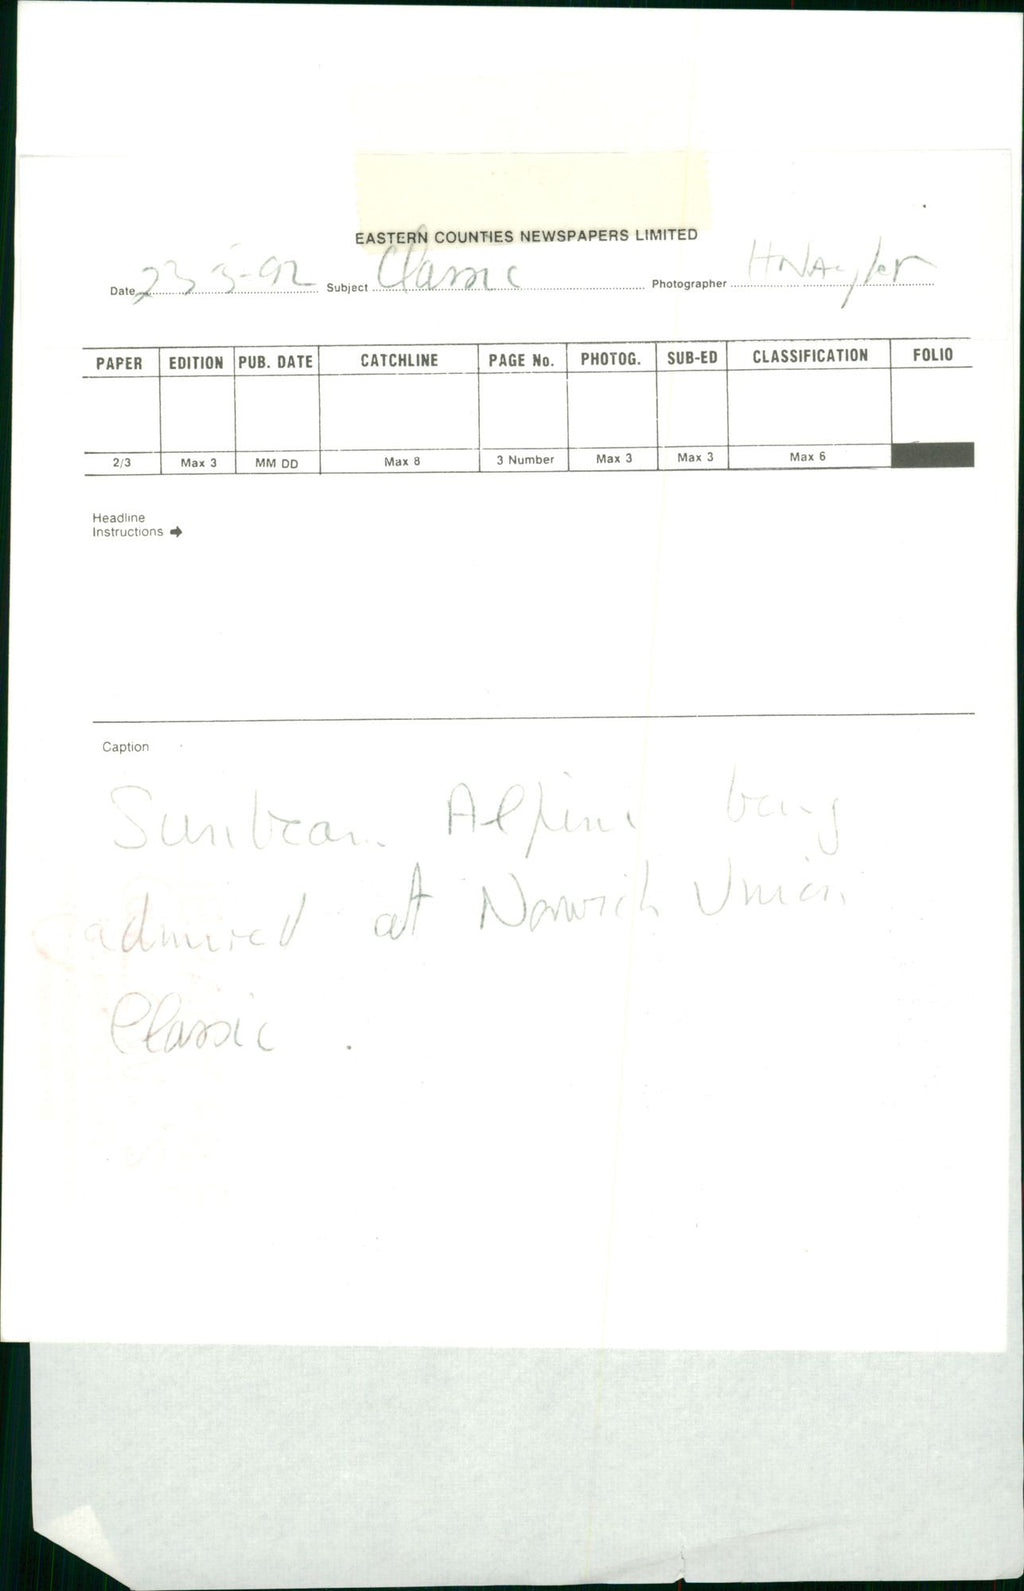 EASTERN COUNTIES NEWSPAPERS LIMITED
Date 23-5-92 Subject Classic Photographer H Naylor
PAPER EDITION PUB. DATE CATCHLINE PAGE No. PHOTOG. SUB-ED CLASSIFICATION FOLIO
2/3 Max 3 MM DD Max 8 3 Number Max 3 Max 3 Max 6
Headline
Instructions →
Caption
Sunbeam Alpine being
admired at Norwich Union
Classic.